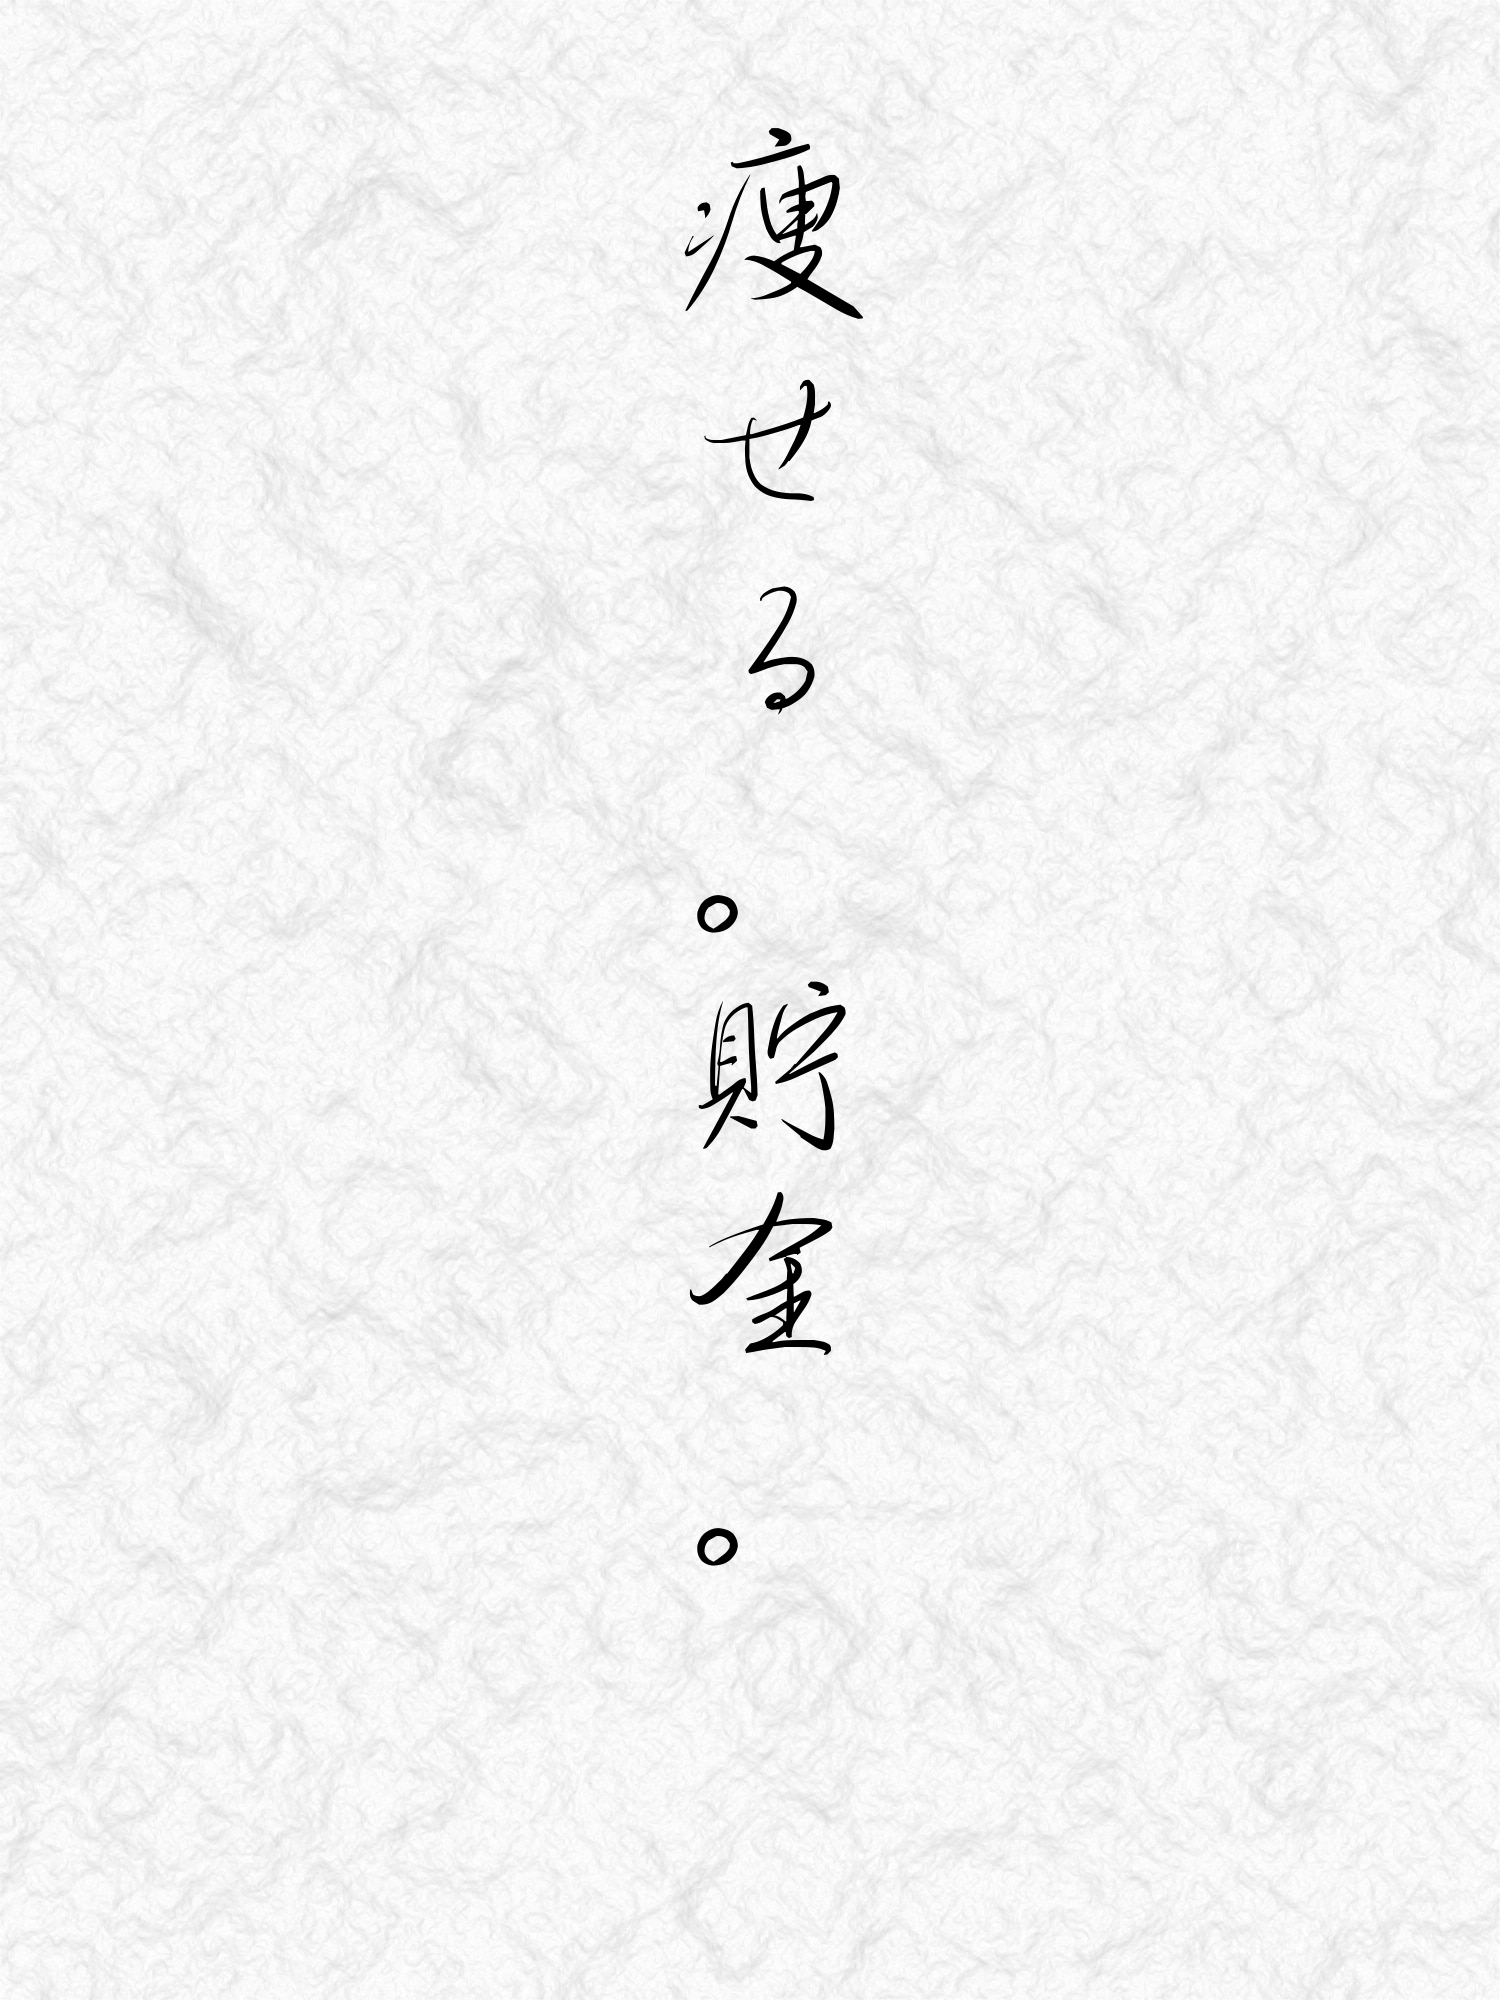 痩せる。貯金。